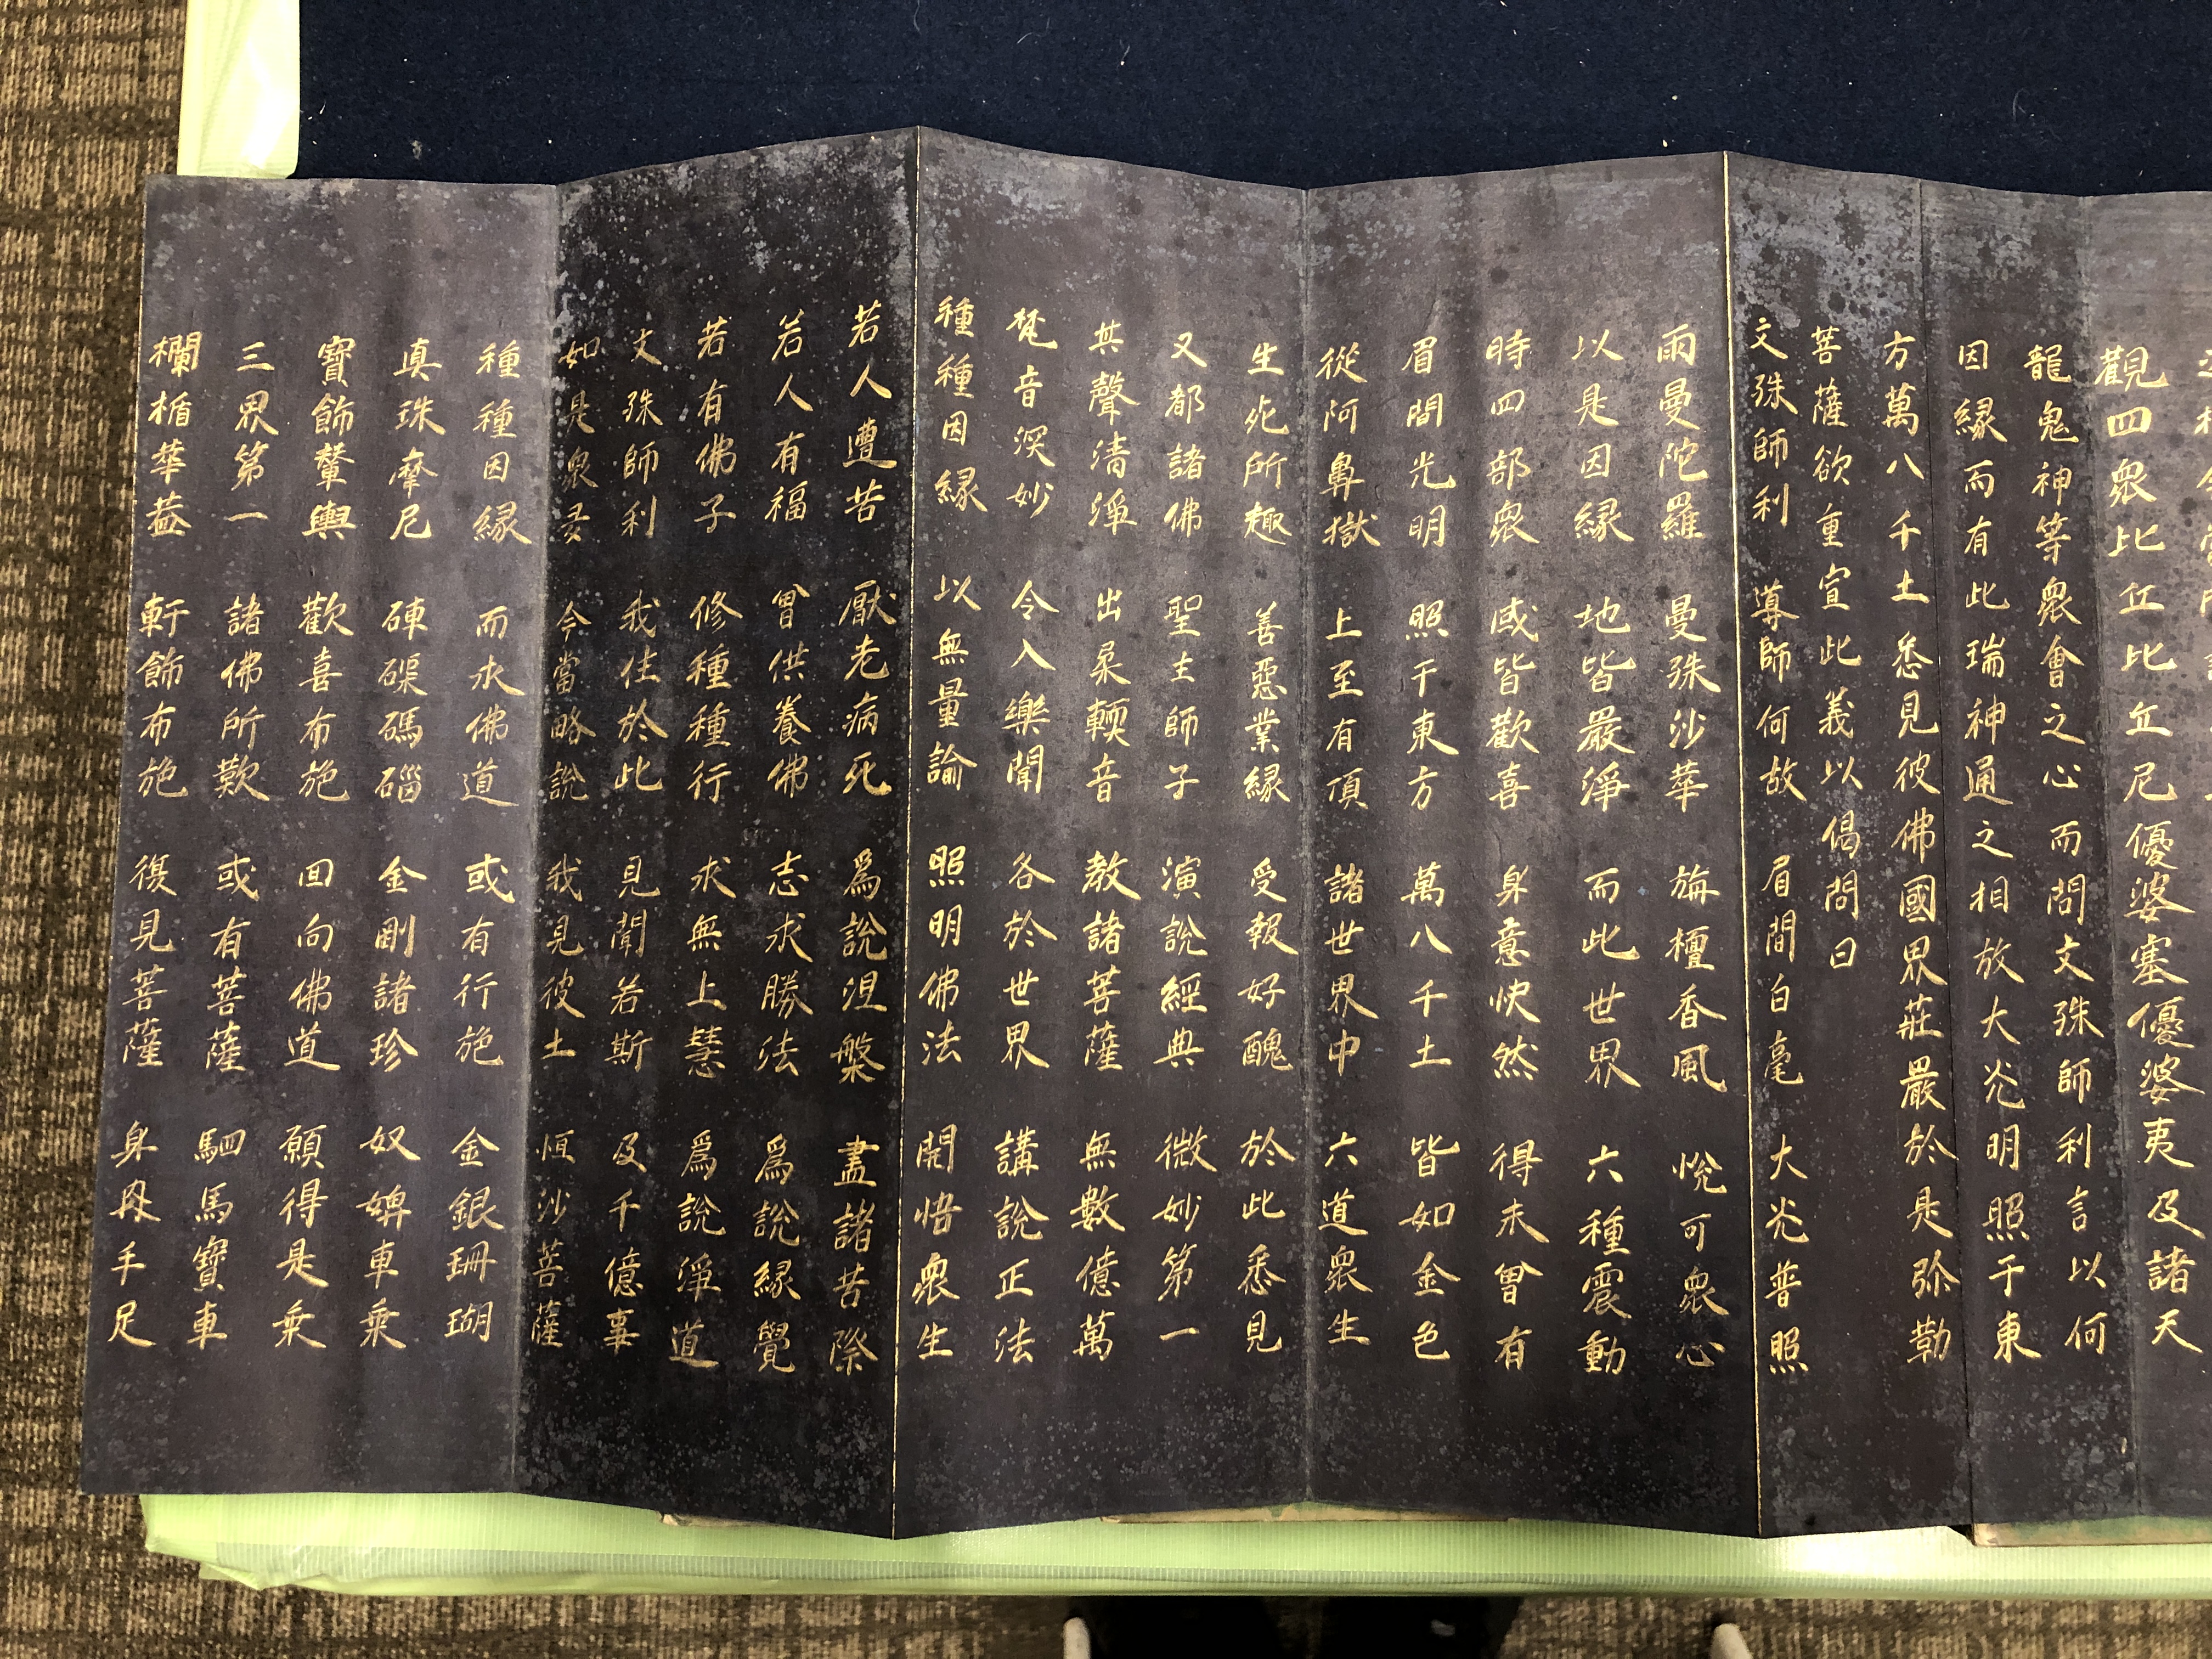 觀四衆比丘比丘尼優婆塞優婆夷及諸天
龍鬼神等衆會之心而問文殊師利言以何
因緣而有此瑞神通之相放大光明照于東
方萬八千土悉見彼佛國界莊嚴於是弥勒
菩薩欲重宣此義以偈問曰
文殊師利 導師何故 眉間白毫 大光普照
雨曼陀羅 曼殊沙華 旃檀香風 悅可衆心
以是因緣 地皆嚴淨 而此世界 六種震動
時四部衆 咸皆歡喜 身意快然 得未曾有
眉間光明 照于東方 萬八千土 皆如金色
從阿鼻獄 上至有頂 諸世界中 六道衆生
生死所趣 善惡業緣 受報好醜 於此悉見
又都諸佛 聖主師子 演說經典 微妙第一
其聲清淨 出柔輭音 教諸菩薩 無數億萬
梵音深妙 令入樂聞 各於世界 講說正法
種種因緣 以無量諭 照明佛法 開悟衆生
若人遭苦 厭老病死 爲說涅槃 盡諸苦際
若人有福 曾供養佛 志求勝法 爲說緣覺
若有佛子 修種種行 求無上慧 爲說淨道
文殊師利 我住於此 見聞若斯 及千億事
如是衆多 今當略說 我見彼土 恒沙菩薩
種種因緣 而求佛道 或有行施 金銀珊瑚
真珠摩尼 硨磲碼碯 金剛諸珍 奴婢車乗
寶飾輦輿 歡喜布施 回向佛道 願得是乗
三界第一 諸佛所歎 或有菩薩 駟馬寶車
欄楯華葢 軒飾布施 復見菩薩 身肉手足